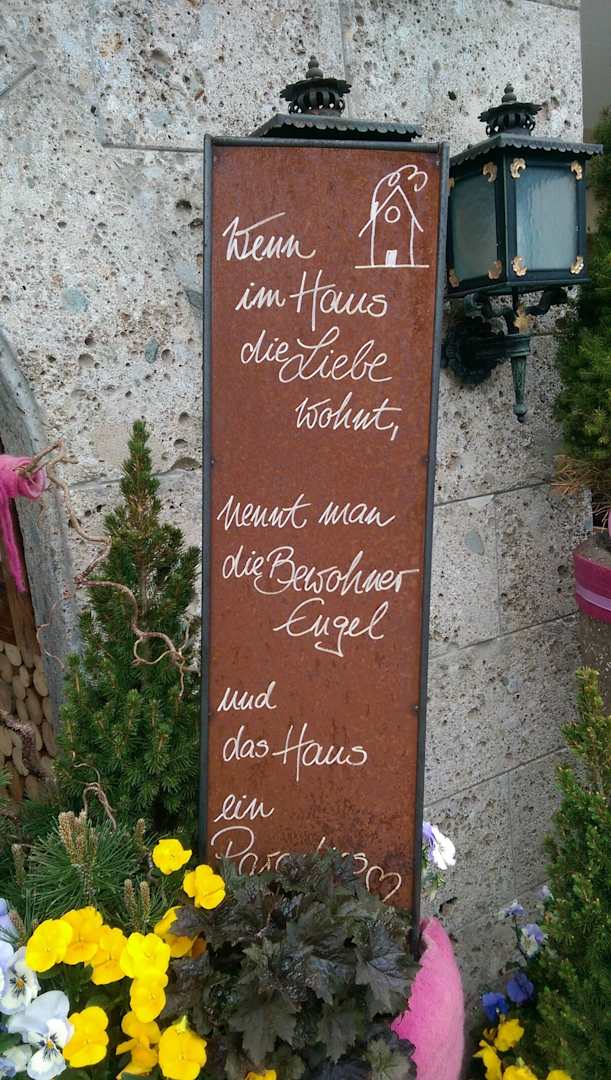 Wenn
im Haus
die Liebe
wohnt,
nennt man
die Bewohner
Engel
und
das Haus
ein
Paradies